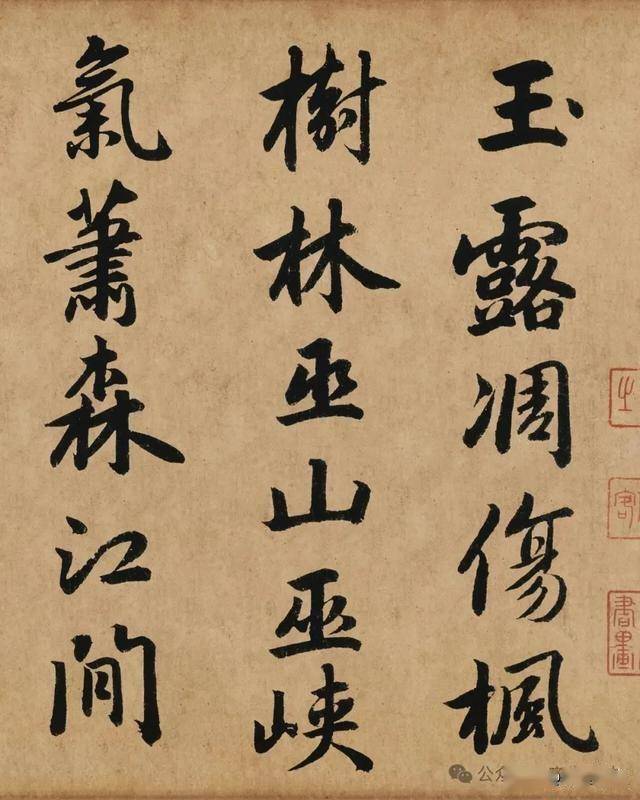 玉露凋傷楓
樹林巫山巫峽
氣蕭森江間
之
客
書畫
公众